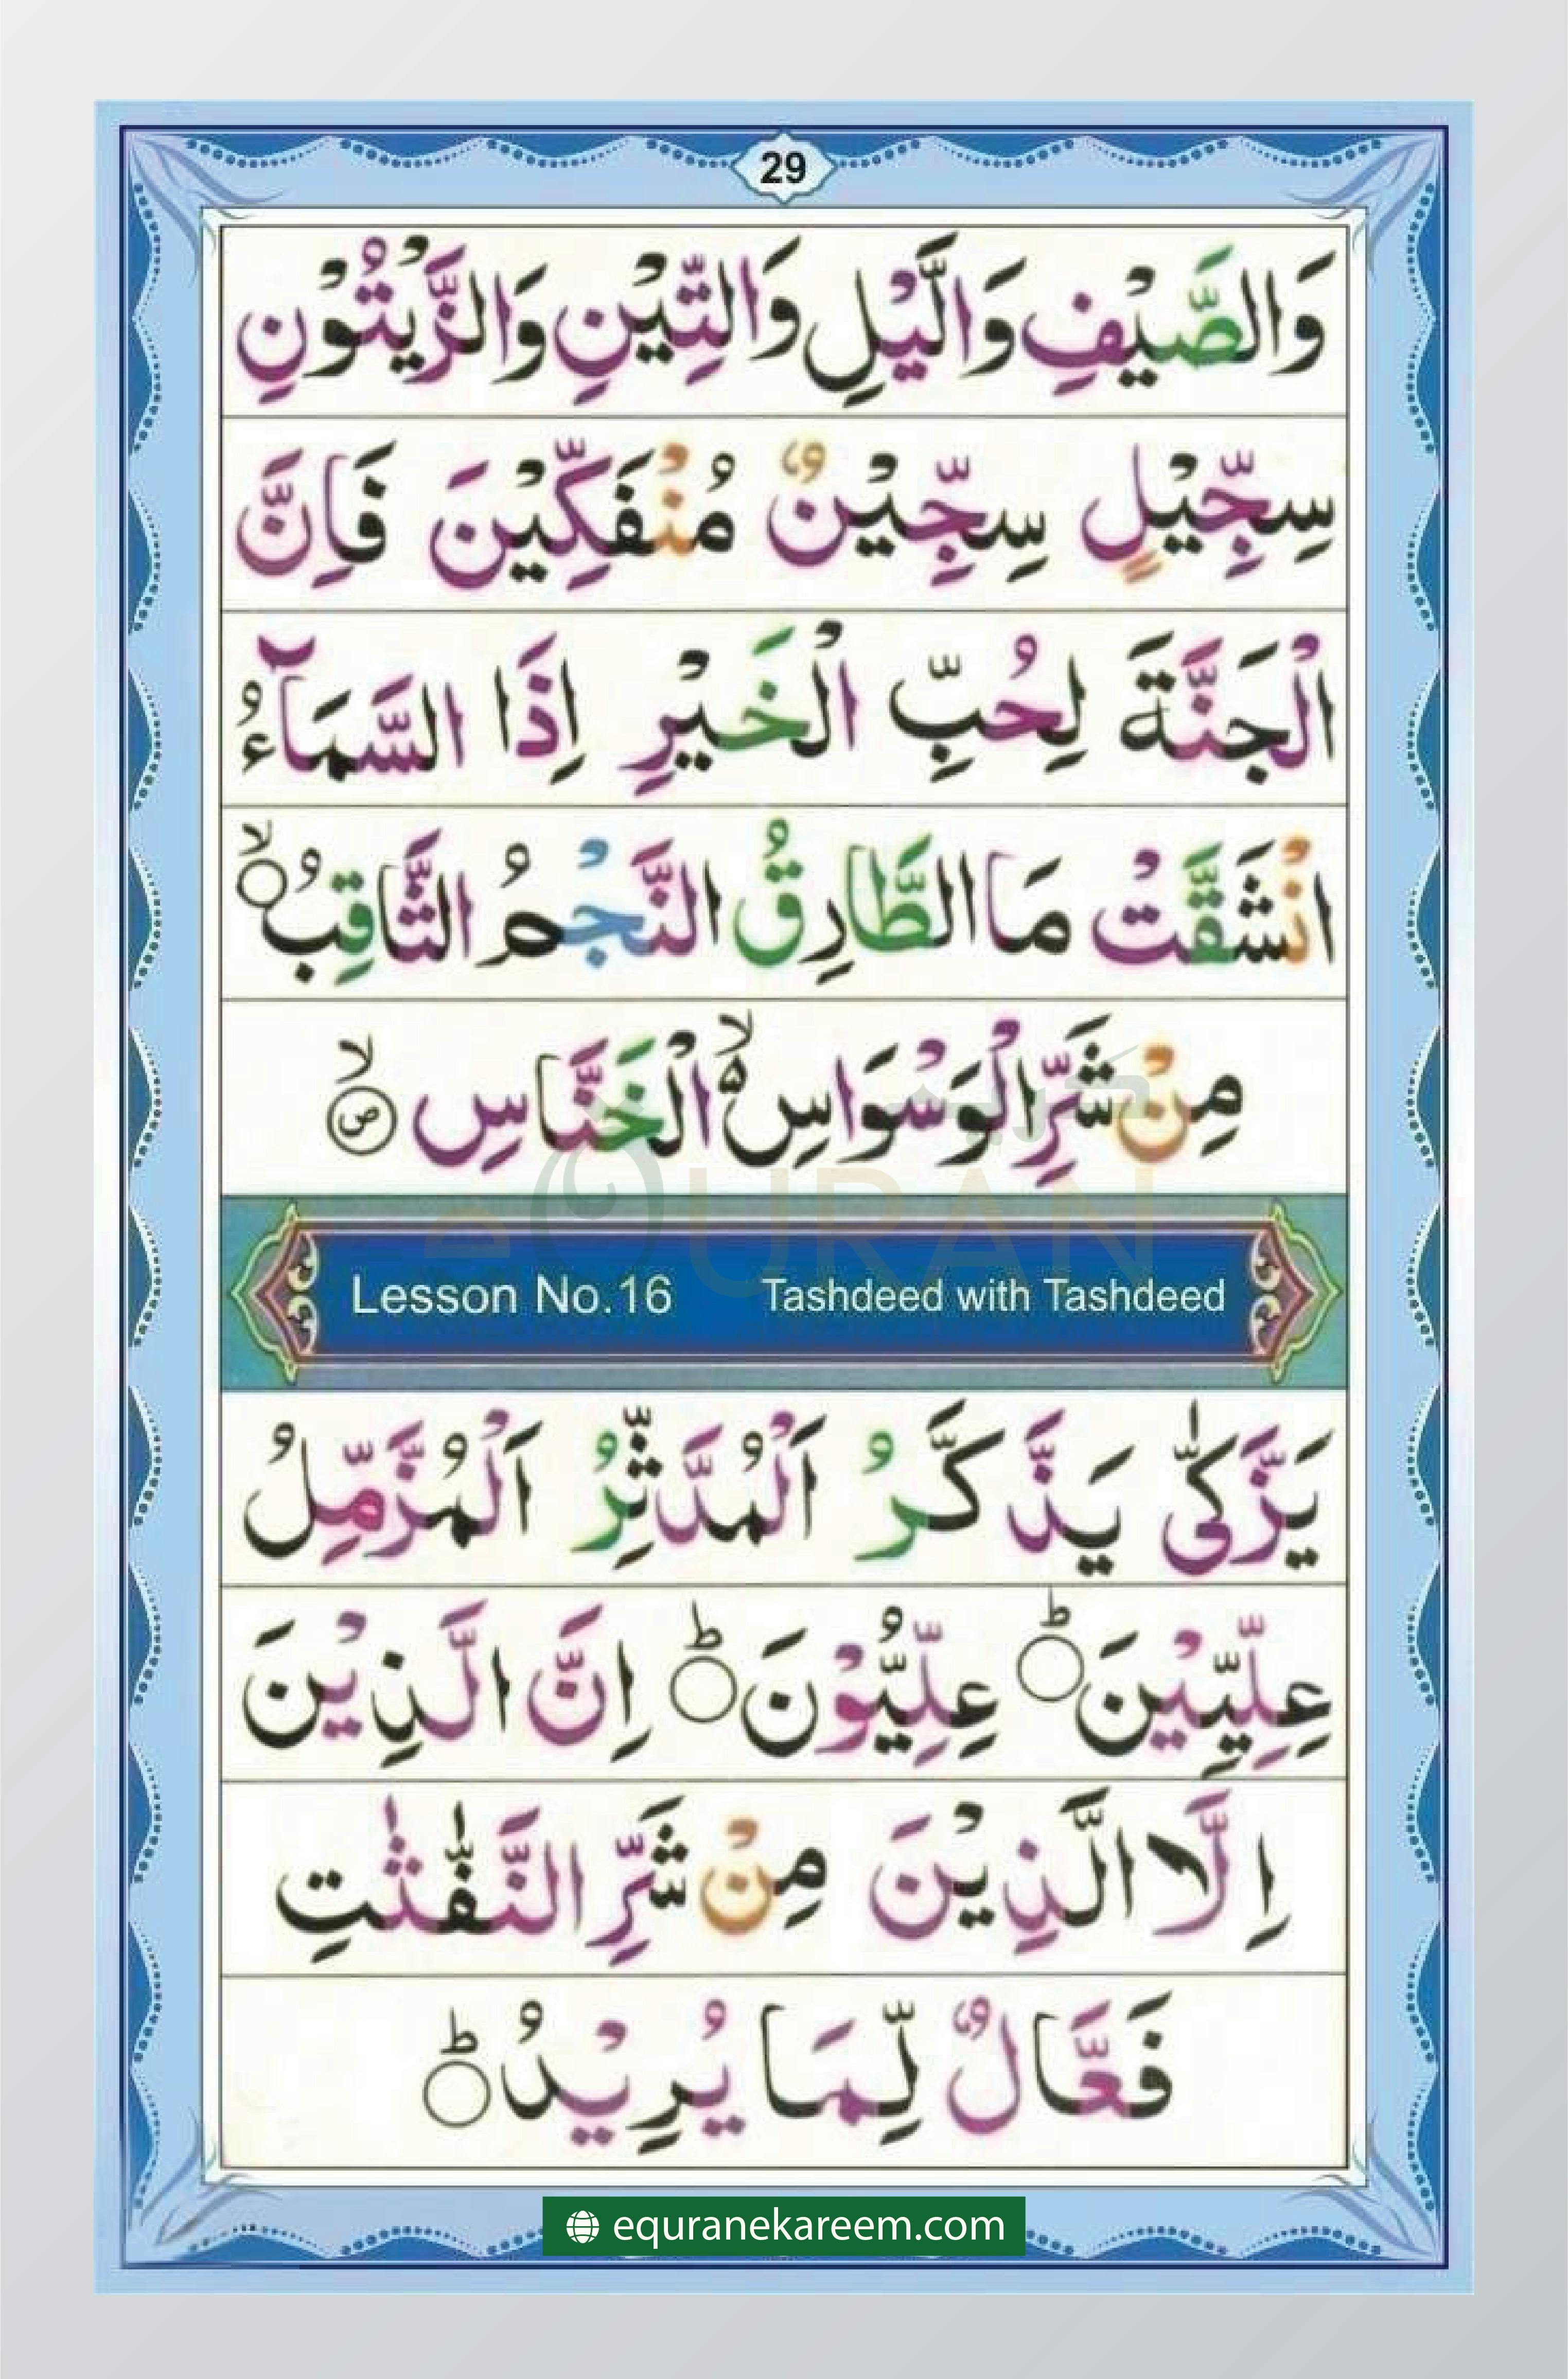 29
وَالصَّيْفِ وَالَّيْلِ وَالتِّيْنِ وَالزَّيْتُوْنِ
سِجِّيْلٍ سِجِّيْنٌ مُنْفَكِّيْنَ فَاِنَّ
الْجَنَّةَ لِحُبِّ الْخَيْرِ اِذَا السَّمَآءُ
انْشَقَّتْ مَا الطَّارِقُ النَّجْمُ الثَّاقِبُ ۙ
مِنْ شَرِّ الْوَسْوَاسِ ۵ۙ الْخَنَّاسِ ص ۙ
QURAN
Lesson No.16 Tashdeed with Tashdeed
يَزَّكّٰى يَذَّكَّرُ اَلْمُدَّثِّرُ اَلْمُزَّمِّلُ
عِلِّيِّيْنَ ؕ عِلِّيُّوْنَ ؕ اِنَّ الَّذِيْنَ
اِلَّا الَّذِيْنَ مِنْ شَرِّ النَّفّٰثٰتِ
فَعَّالٌ لِّمَا يُرِيْدُ ؕ
equranekareem.com